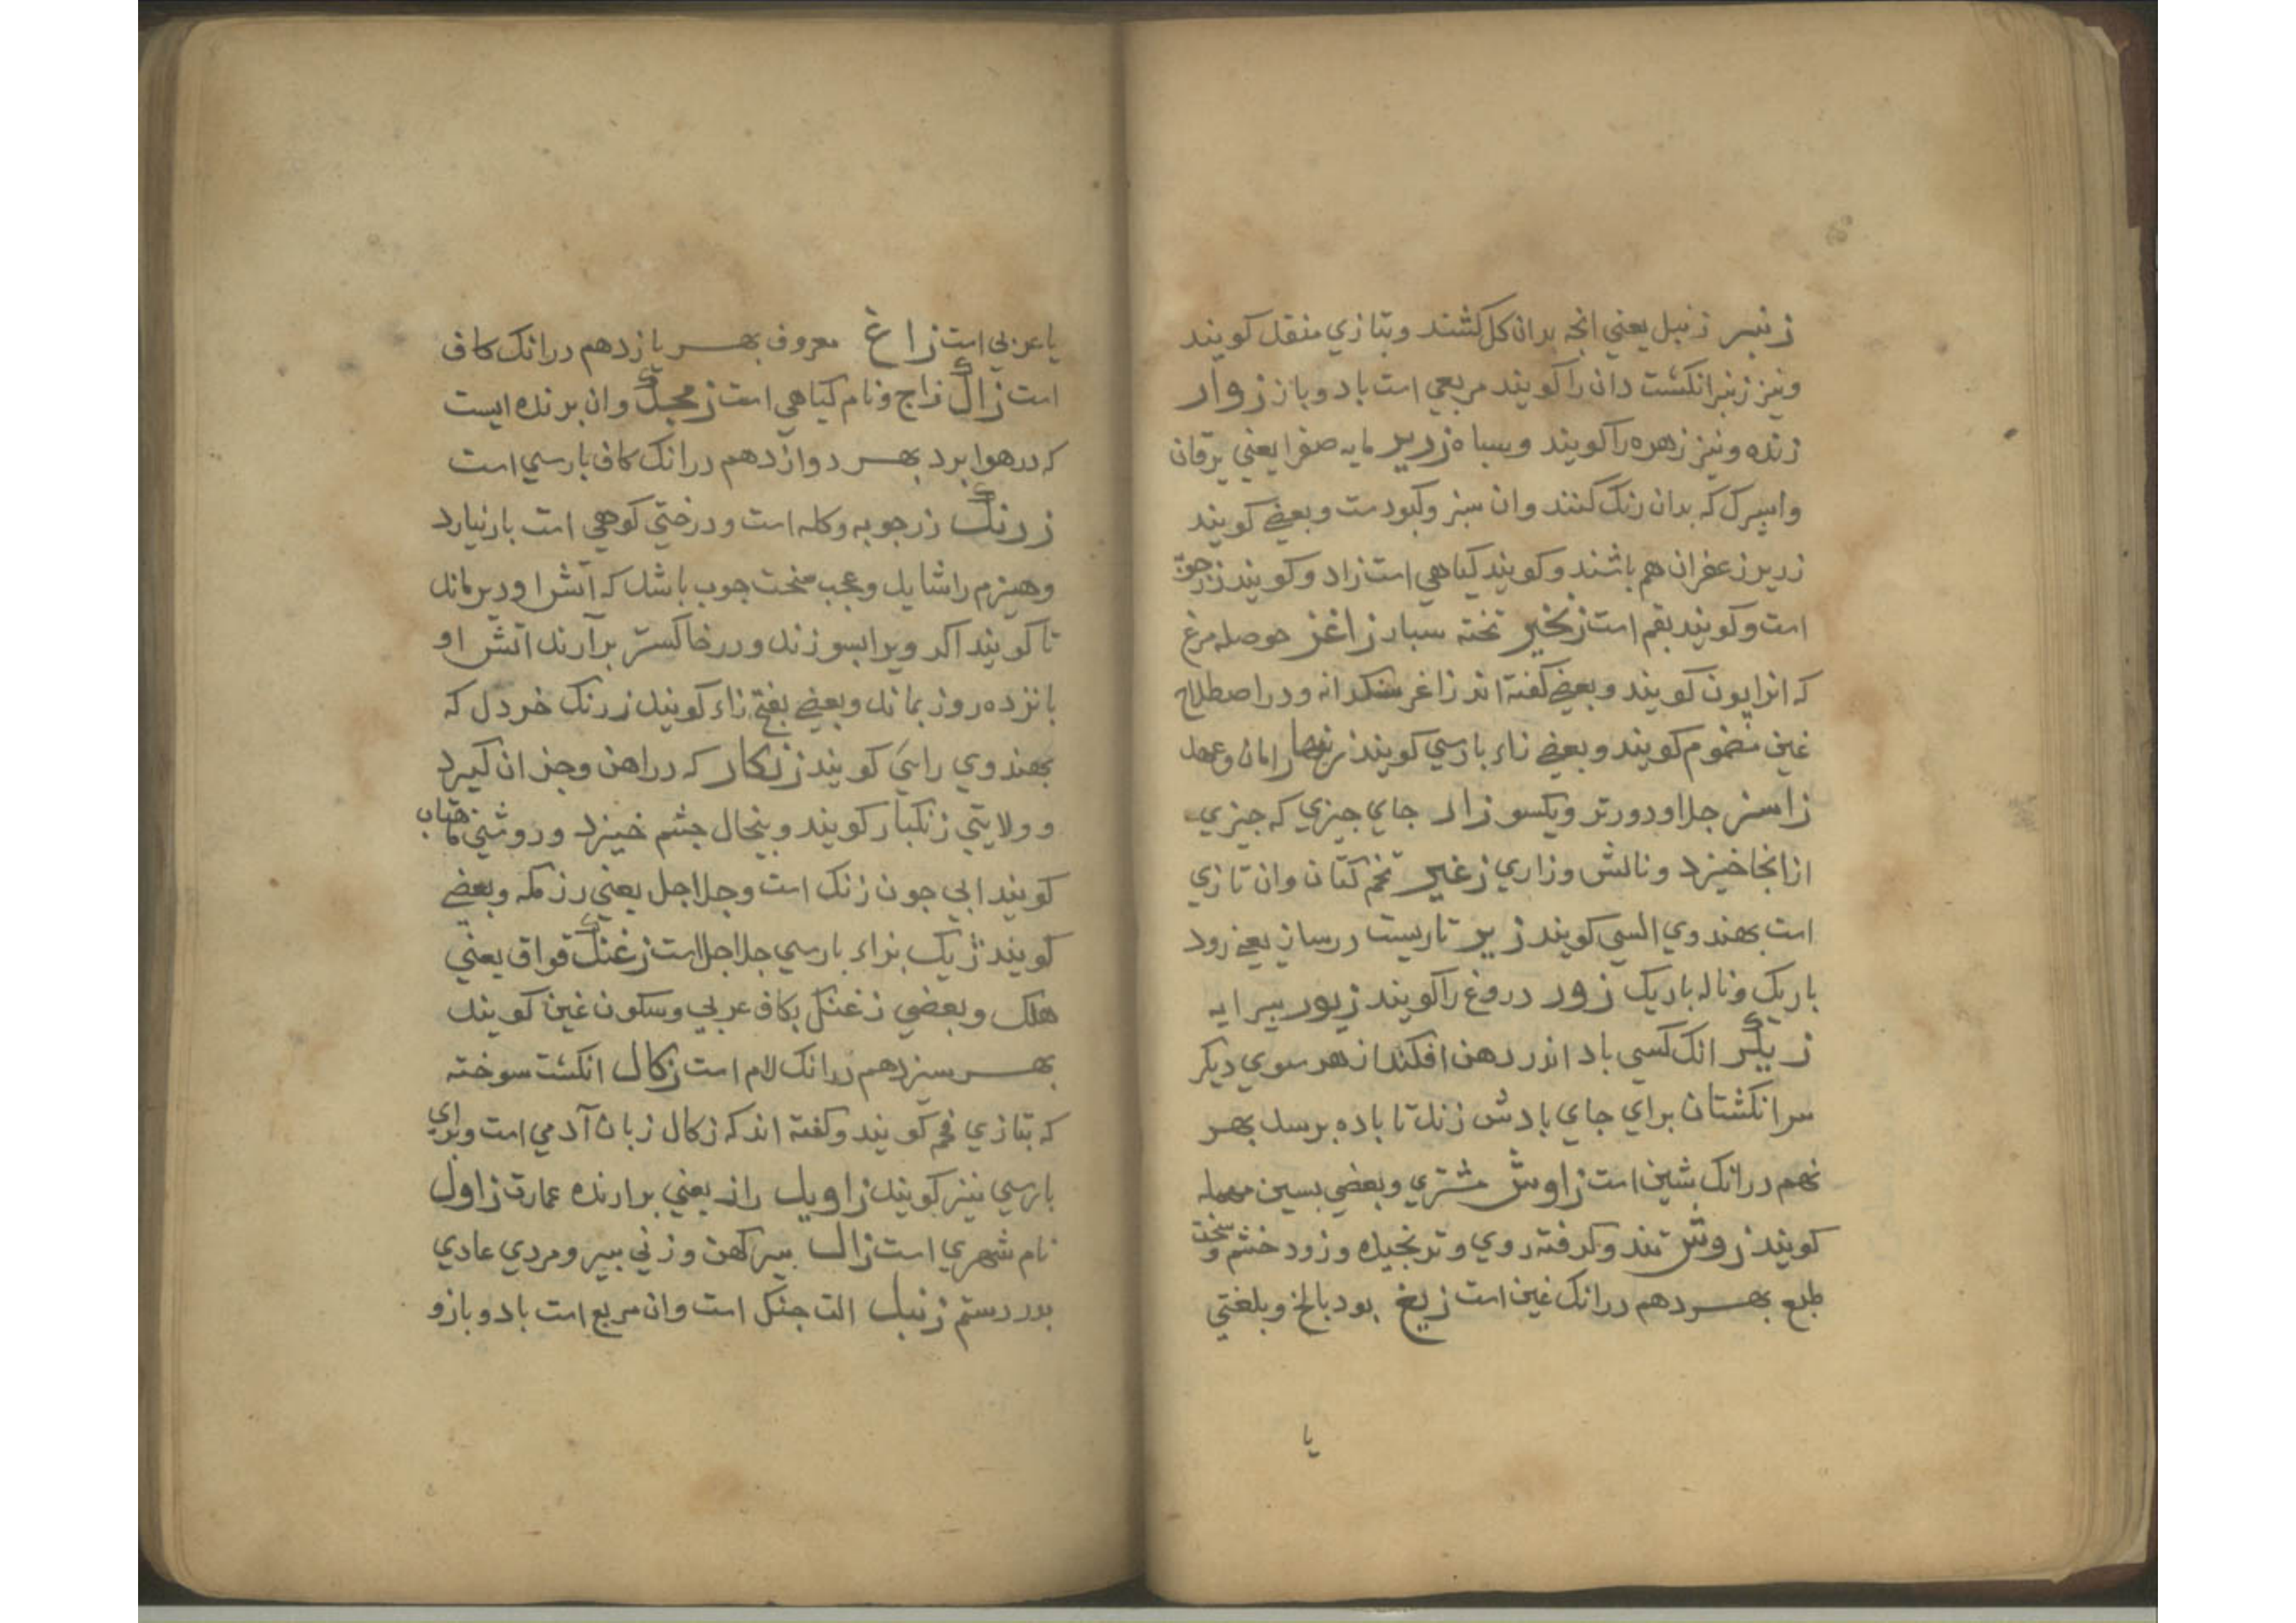 زنبر زنبل يعني انجه بدان كل كشند وبتازي منقل كويند
ونيز زنبر انكشت دان را كويند مربعي است باد وباز زوار
زنده ونيز زهره را كويند وسياه زرير مايه صفرا يعني يرقان
واسپرك كه بدان رنك كنند وان سبز وكبودست وبعضي كويند
زرير زعفران هم باشند وكويند كياهي است زاد وكويند زرجوبه
است وكويند بقم است زنخير تخته سبار زاغز حوصله مرغ
كه انرا پون كويند وبعضي كفته اند زاغر سنكدانه ودر اصطلاح
غين مضموم كويند وبعضي زاء بارسي كويند زنهار امان وعهد
زاستر جلا ودورتر ويكسو زار جاي جيزي كه جيزي
ازانجا خيزد ونالش وزاري زغير تخم كتان وان تازي
است بهندوي السي كويند زير تاريست در ساز يعني رود
باريك وناله باريك زور دروغ را كويند زيور بيرايه
زيكر انك كسي باد اندر دهن افكند از هر سوي ديكر
سر انكشتان براي جاي بادش زند تا باده برسد بهر
نهم درانك شين است زاوش مشتري وبعضي بسين مهمله
كويند زوش تند وكرفته روي وترنجيده وزود خشم وسخت
طبع بهر دهم درانك غين است زيغ بود بالخ وبلغتي
يا
يا عربي است زاغ معروف بهر يازدهم درانك كاف
است زاك زاج ونام كياهي است زمجك وان برنده ايست
كه در هوا برد بهر دوازدهم درانك كاف بارسي است
زرنك زرجوبه وكله است ودرختي كوهي است بار نيارد
وهيزم را شايد وعجب سخت جوب باشد كه آتش اودير ماند
تا كويند اكر ويرا بسوزند ودر خاكستر برآرند آتش او
بانزده روز بماند وبعضي بفتح زاء كويند زرنك خردل كه
بهندوي راسي كويند زنكار كه در اهن وجز ان كيرد
وولايتي زنكبار كويند وبنجال جشم خيزد وروشني ماهتاب
كويند ابي جون زنك است وجلاجل يعني رزمكه وبعضي
كويند ژنك بزاء بارسي جلاجل است زغنك قواق يعني
هلك وبعضي زغنك بكاف عربي وسكون غين كويند
بهر سيزدهم درانك لام است زكال انكشت سوخته
كه بتازي فحم كويند وكفته اند كه زكال زبان آدمي است وبراي
بارسي نيز كويند زاويل راز يعني برارنده عمارت زاول
نام شهري است زال بير كهن وزني بير ومردي عادي
بدر رستم زنبل الت جنكل است وان مربع است باد وبازو